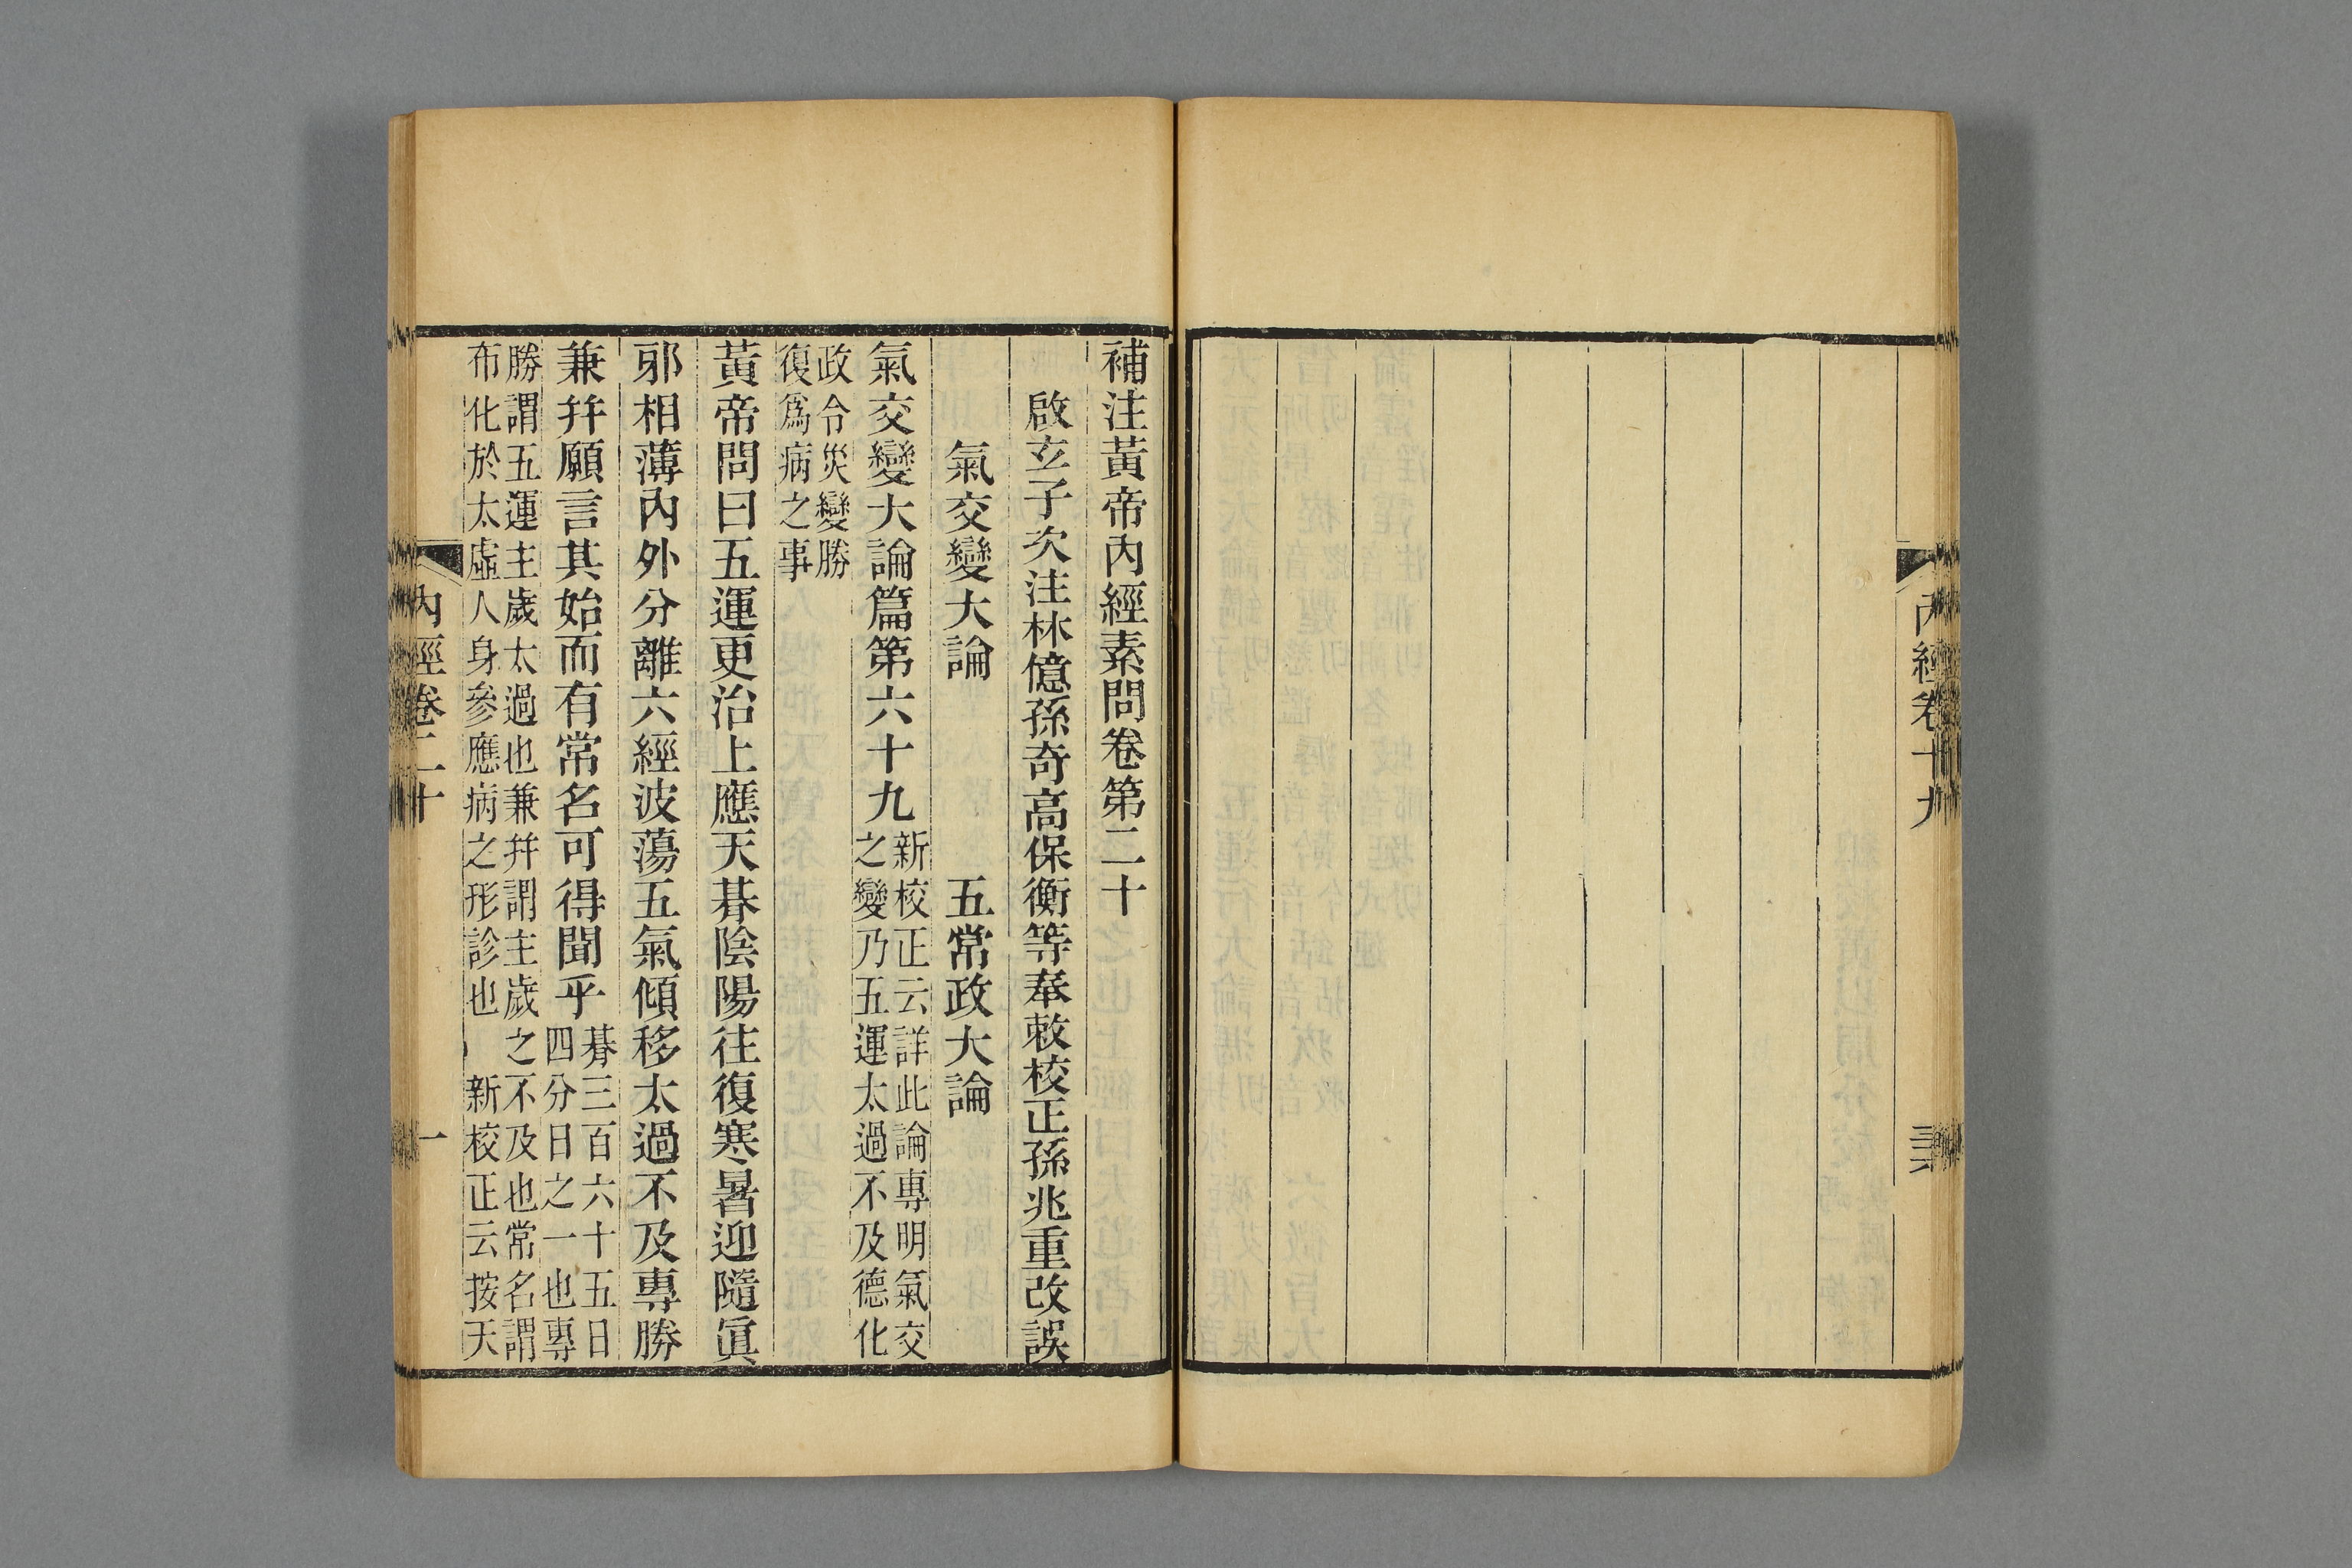 內經卷十九
補注黃帝內經素問卷第二十
啟玄子次注林億孫奇高保衡等奉敕校正孫兆重改誤
氣交變大論　五常政大論
氣交變大論篇第六十九
新校正云詳此論專明氣交
之變乃五運太過不及德化
政令災變勝
復爲病之事
黃帝問曰五運更治上應天朞陰陽往復寒暑迎隨眞
邪相薄內外分離六經波蕩五氣傾移太過不及專勝
兼幷願言其始而有常名可得聞乎
朞三百六十五日
四分日之一也專
勝謂五運主歲太過也兼幷謂主歲之不及也常名謂
布化於太虛人身參應病之形診也　新校正云按天
內經卷二十
一